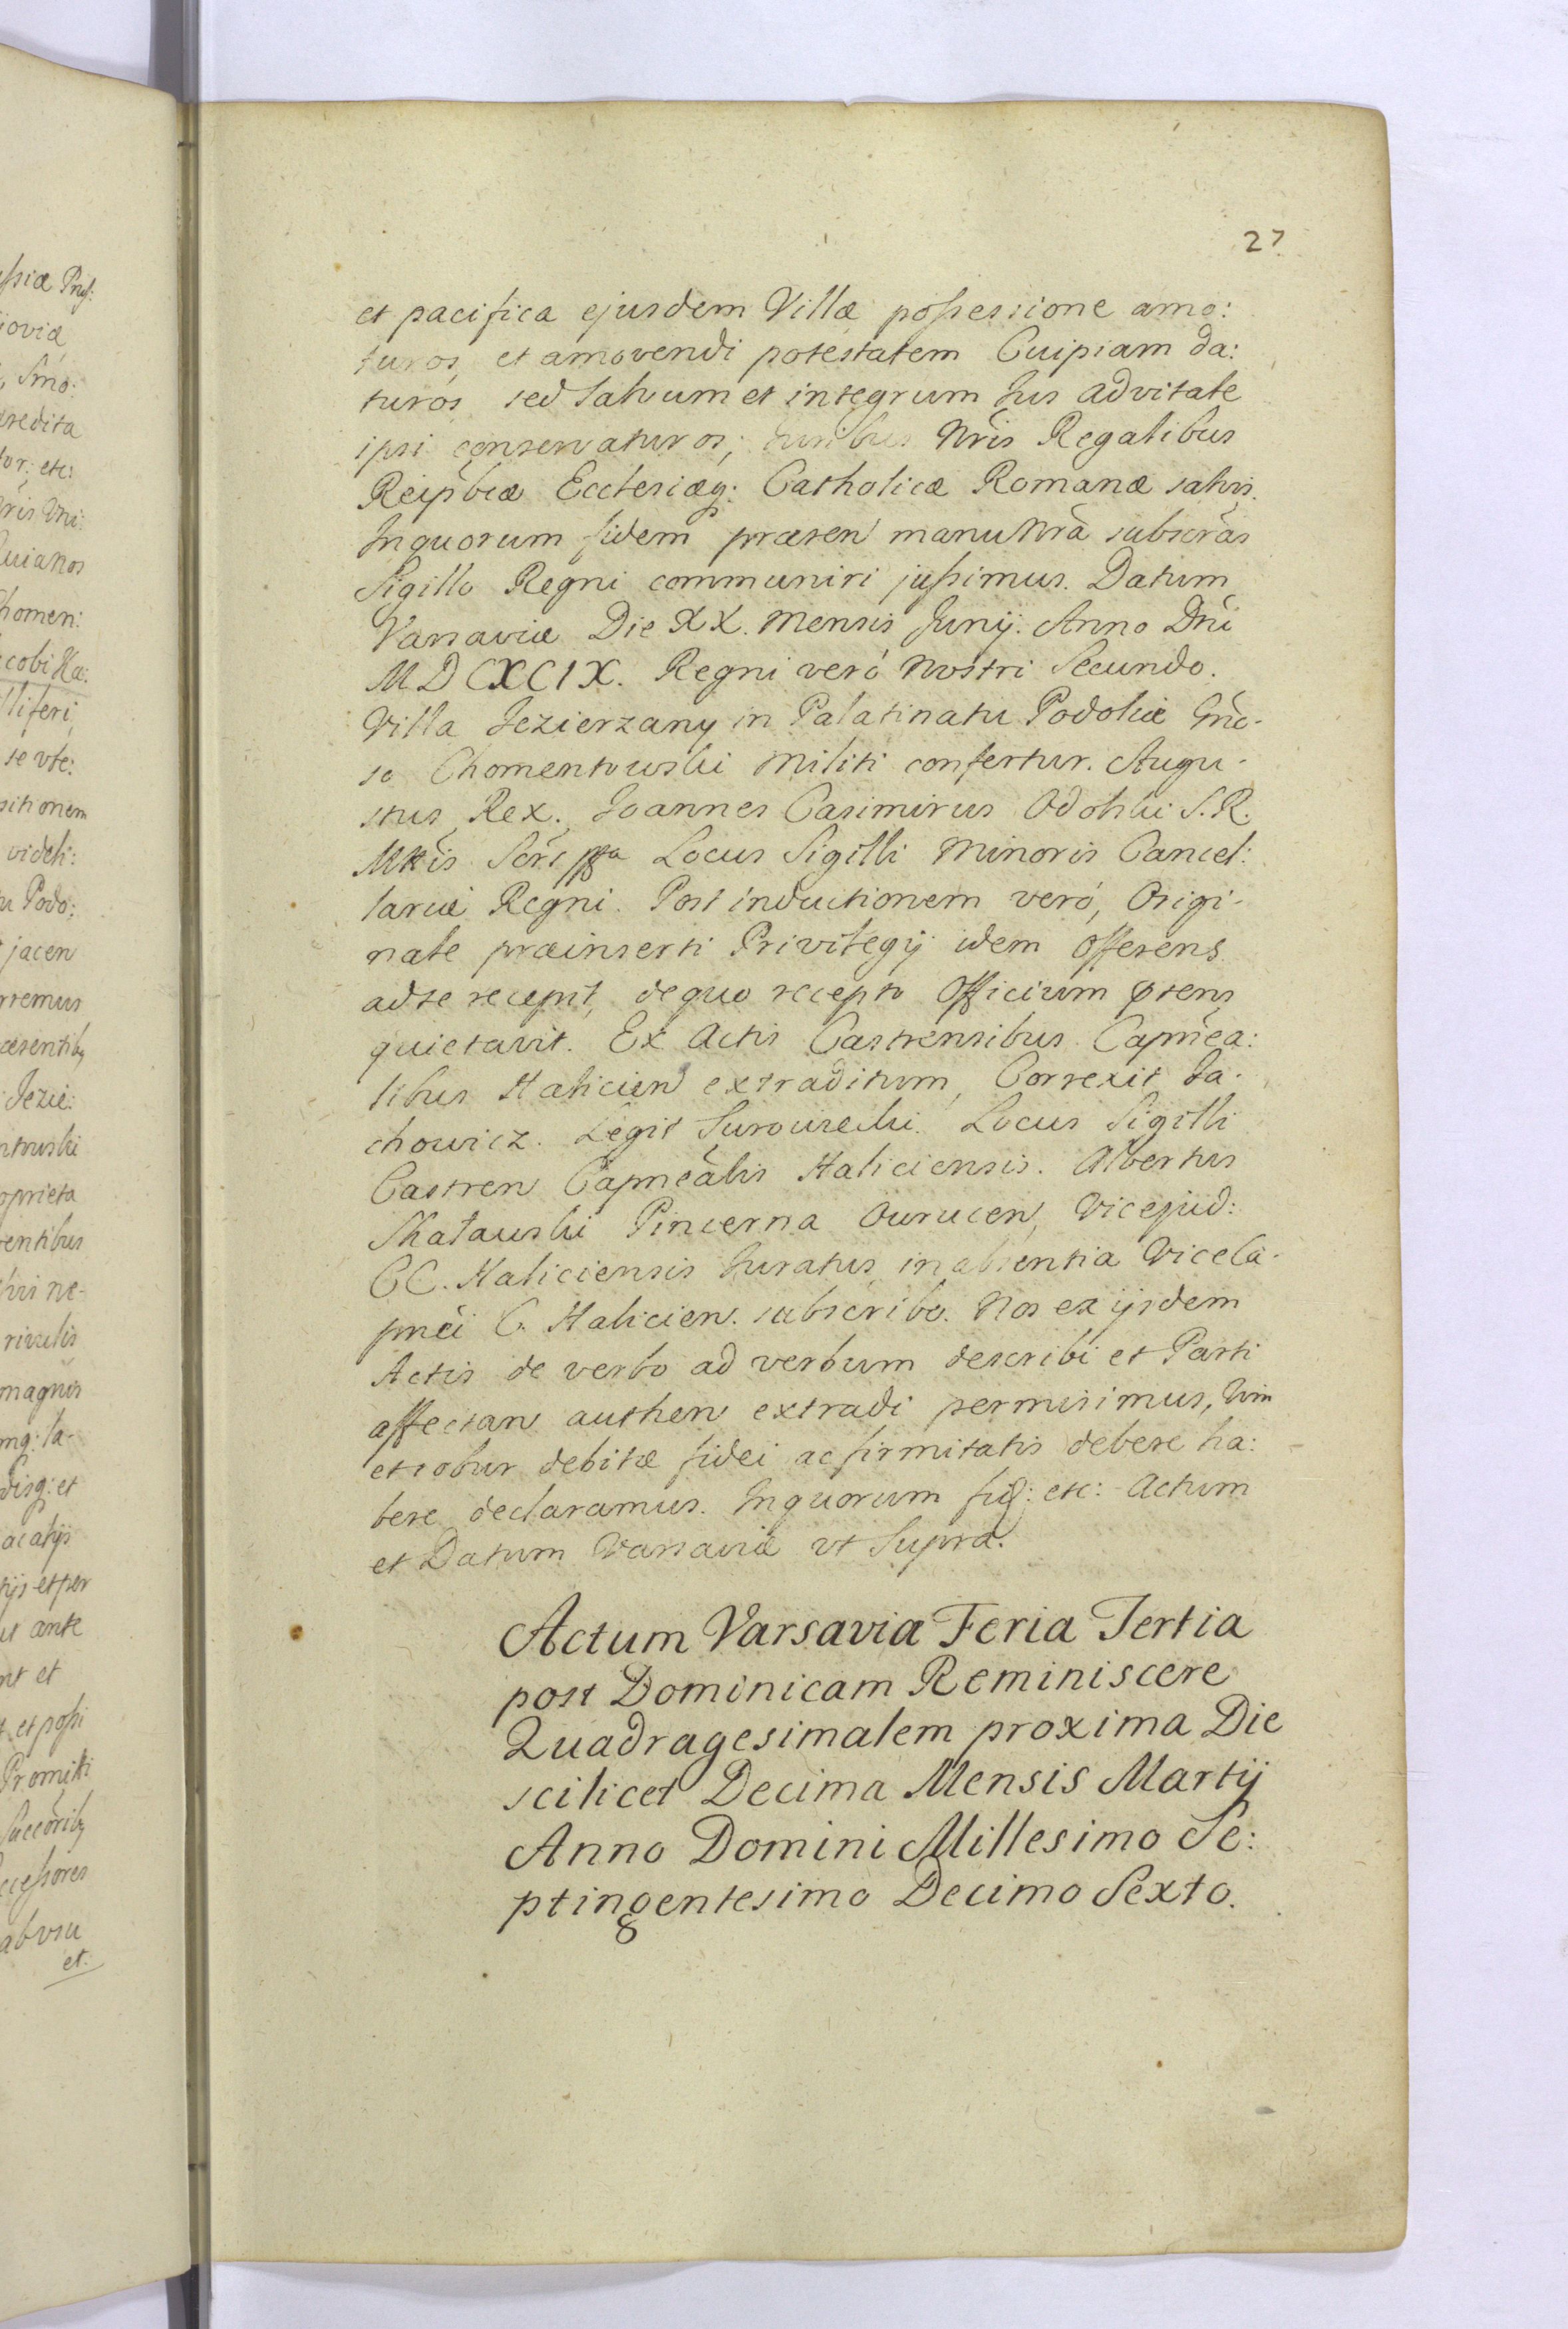 27
et pacifica ejusdem Villæ possessione amo:
turos, et amovendi potestatem Cuipiam da:
turos sed Salvum et integrum Jus advitale
ipsi conservaturos; Juribus Nris Regalibus
Reipbcæ Ecclesiæq: Catholicæ Romanæ salvis.
Inquorum fidem præsen manu Nrã subscrãs
Sigillo Regni communiri jussimus. Datum
Varsaviæ Die XX. Mensis Junij. Anno Dni
MDCXCIX. Regni veró Nostri Secundo.
Villa Jezierzany in Palatinatu Podoliæ Gnõ-
so Chomentowski Militi confertur. Augu-
stus Rex. Joannes Casimirus Odolski S. R.
Mttis Locus Sigilli Minoris Cancel:
lariæ Regni. Post inductionem veró, Origi-
nale præinserti Privilegij idem Offerens
adse recepit, dequo recepto Officium
quietavit. Ex Actis Castrensibus Capnea:
libus Halicien extraditum, Correxit Ja-
chowicz. Legit Surowiecki. Locus Sigilli
Castren Capneãlis Haliciensis. Albertus
Skałauski Pincerna Ovrucen, Vicejud:
CC. Haliciensis Juratus, inabsentia ViceCa-
pnei C. Halicien. subscribo. Nos ex ijsdem
Actis de verbo ad verbum describi et Parti
affectan authen extradi permisimus, Vim
et robur debitæ fidei ac firmitatis debere ha:
bere declaramus. Inquorum fid: etc: Actum
et Datum Varsaviæ vt Supra.
Actum Varsavia Feria Tertia
post Dominicam Reminiscere
Quadragesimalem proxima Die
scilicet Decima Mensis Martij
Anno Domini Millesimo Se:
ptingentesimo Decimo Sexto.